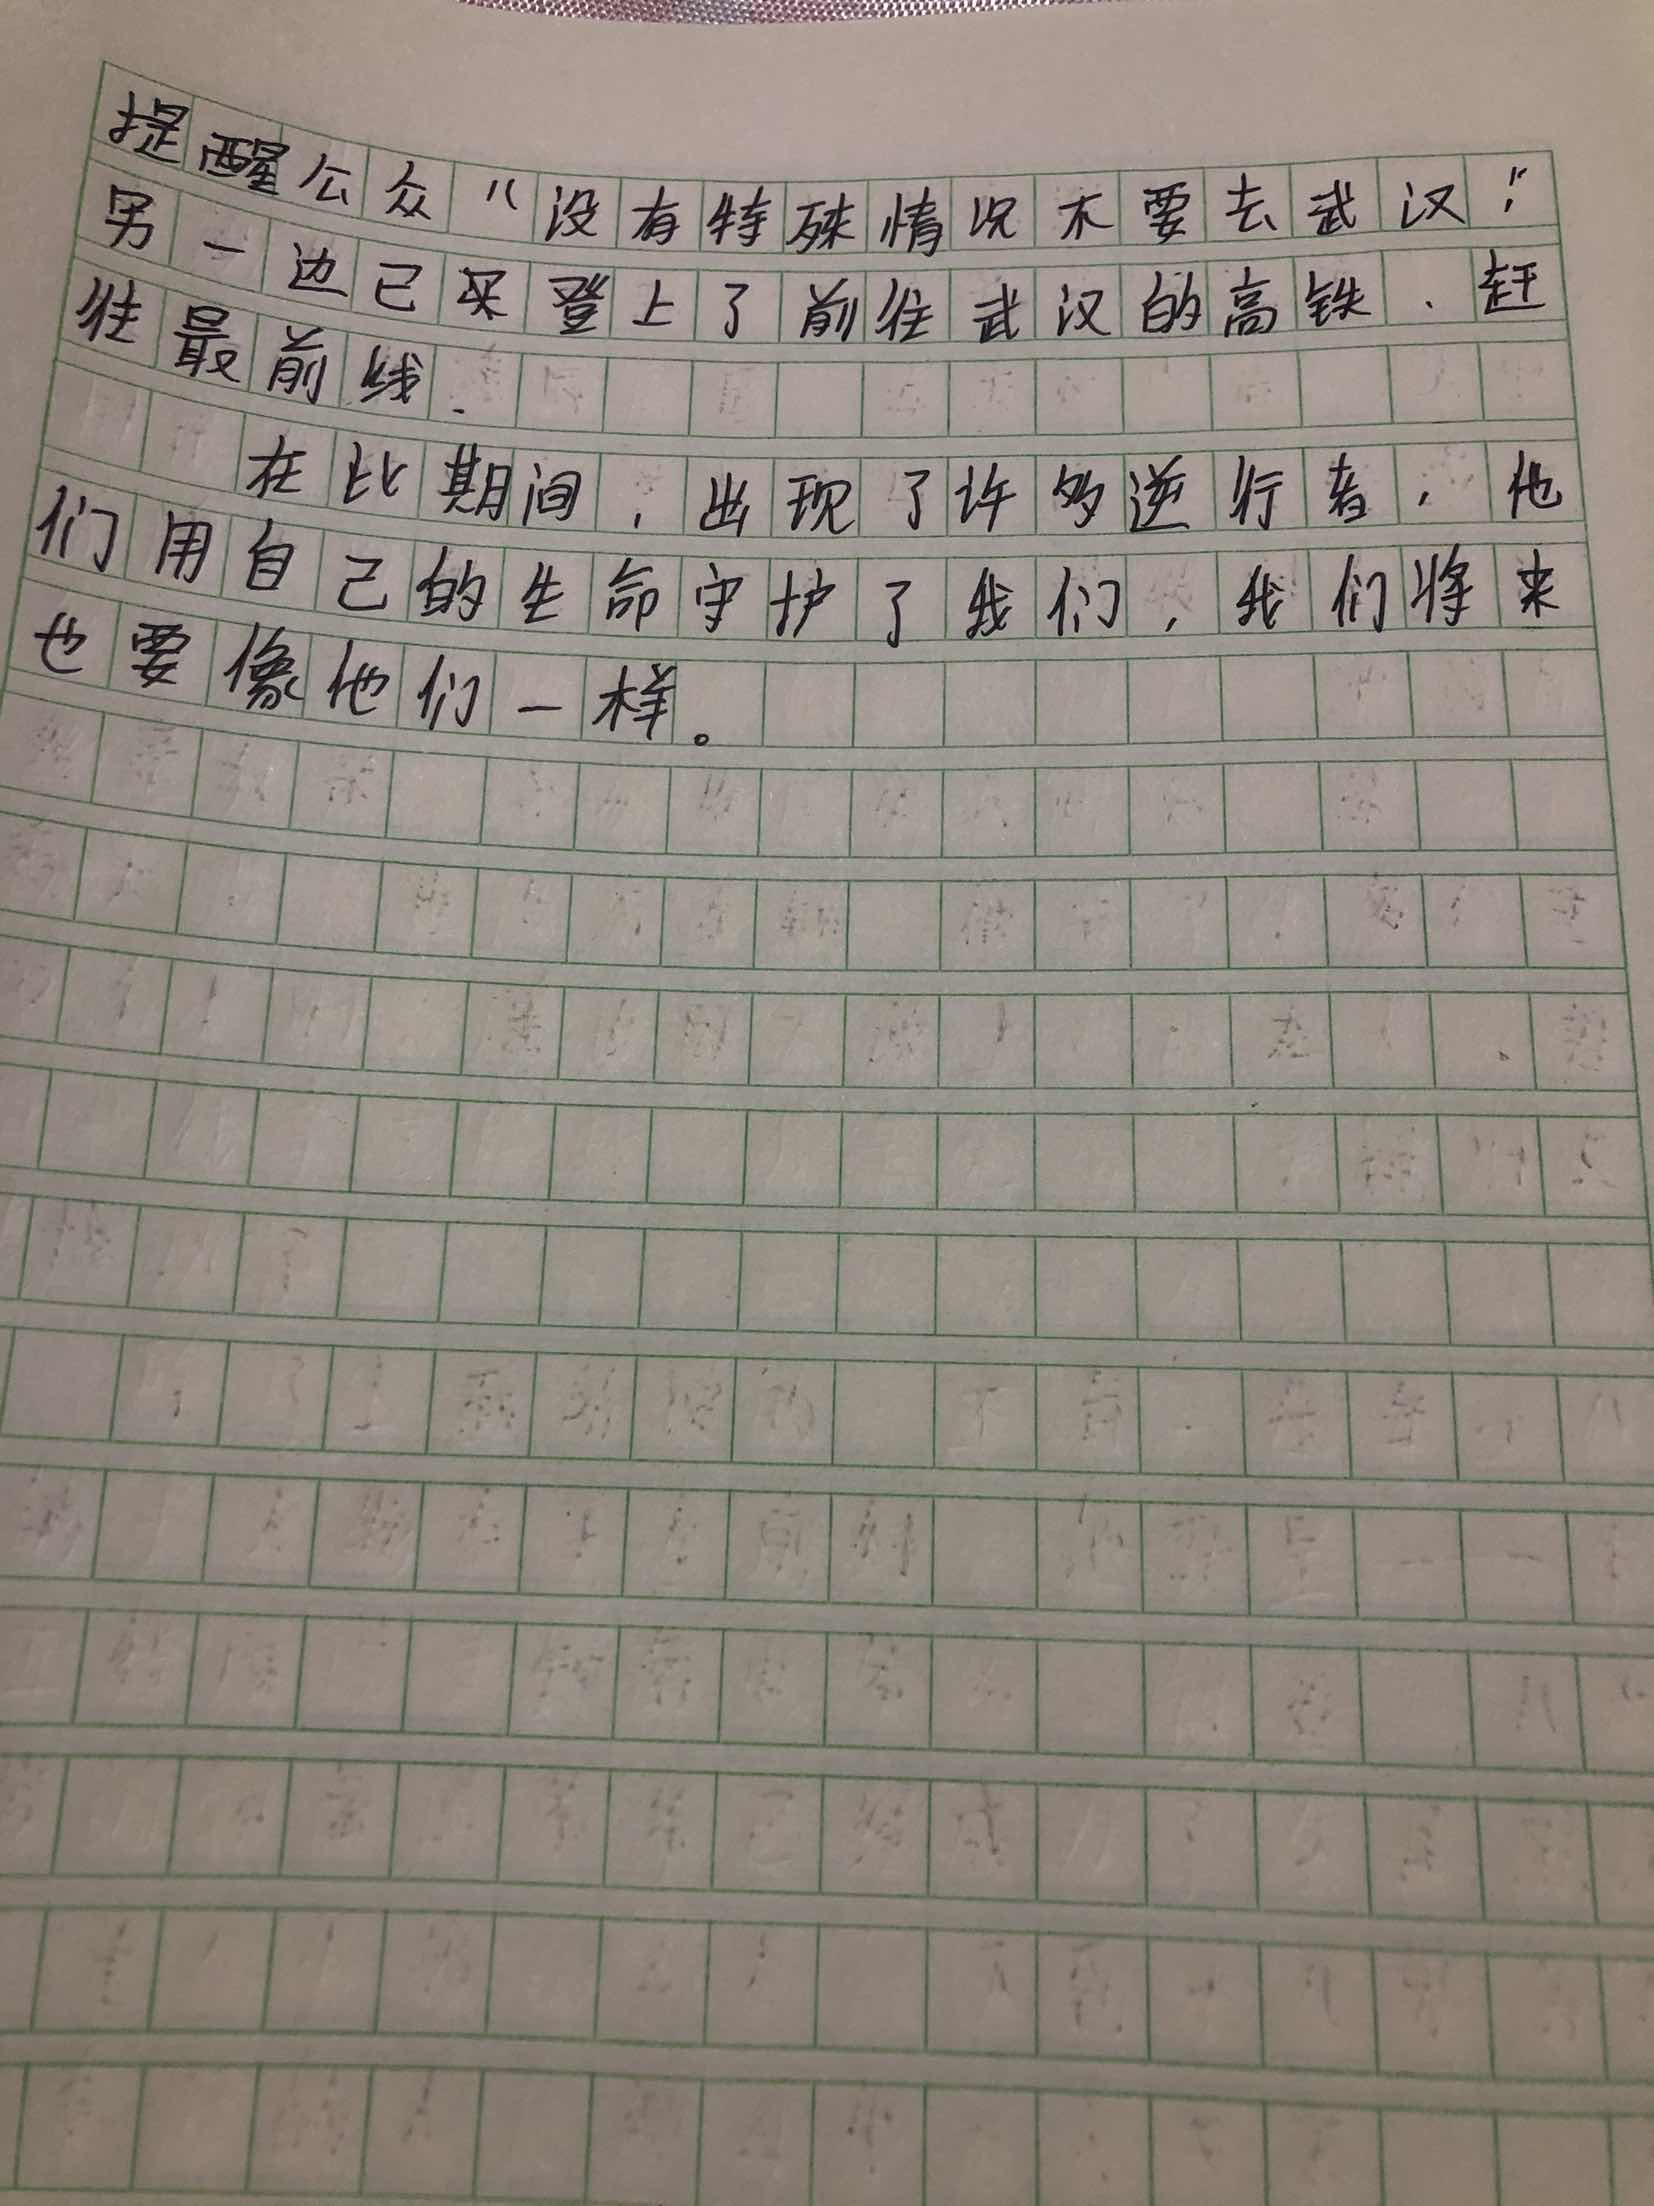 提醒公众“没有特殊情况不要去武汉”，
另一边己买登上了前往武汉的高铁，赶
往最前线.
在此期间，出现了许多逆行者，他
们用自己的生命守护了我们，我们将来
也要像他们一样。